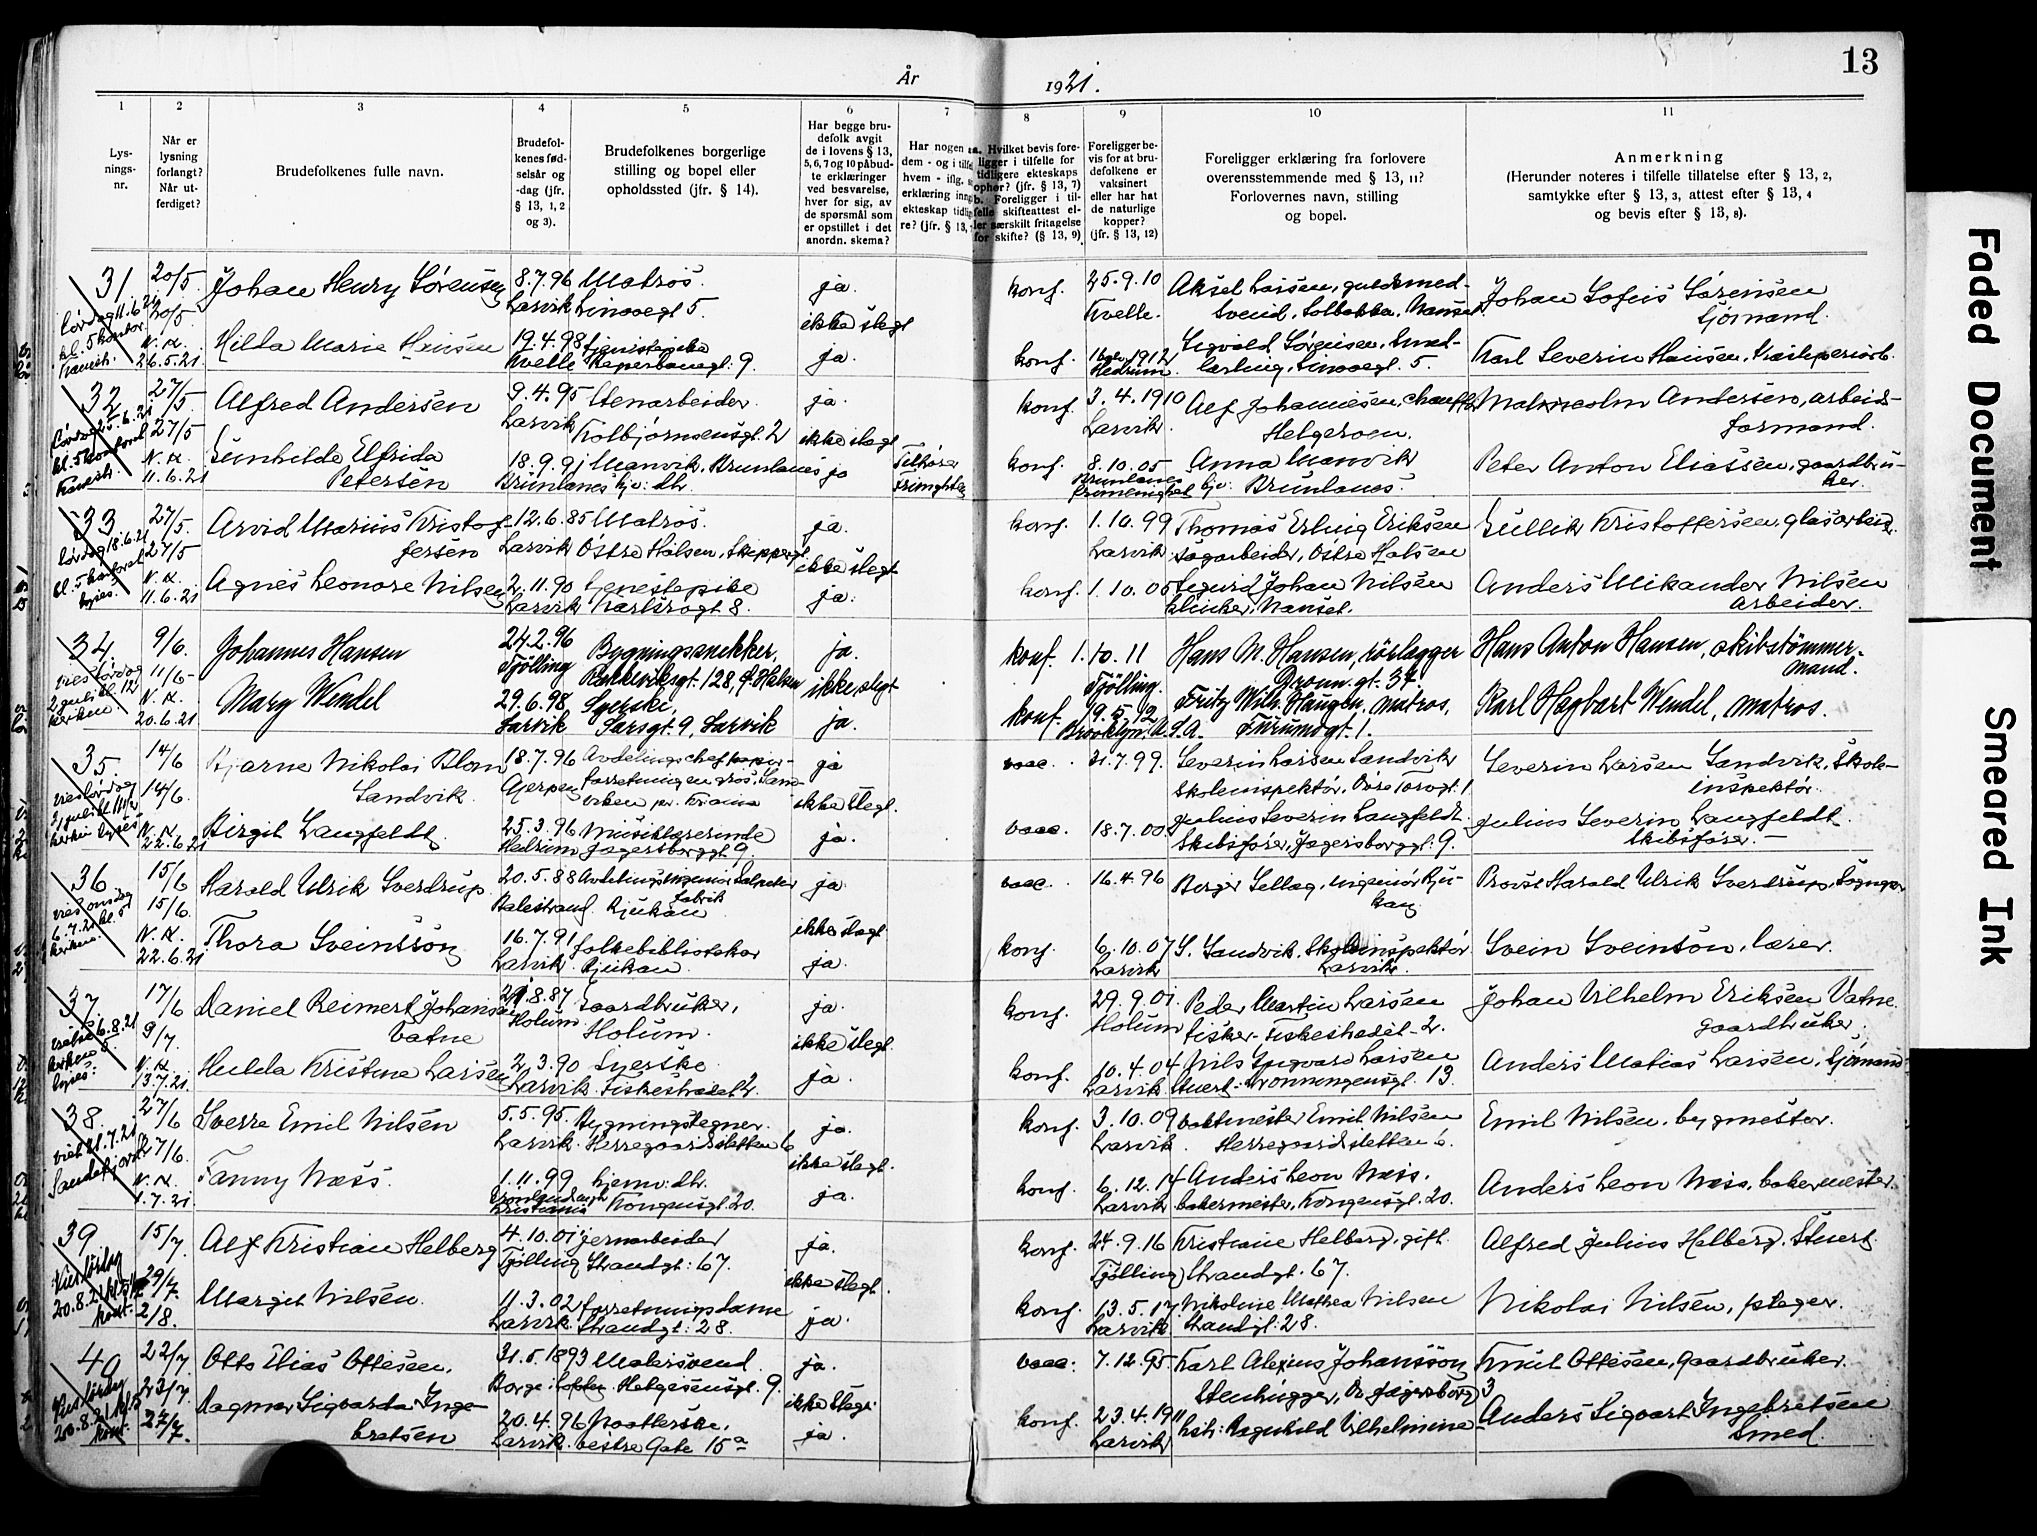 13
År 1921.
1
2
3
4
5
6
7
8
9
10
11
Lys-
nings-
nr.
Når er
lysning
forlangt?
Når ut-
ferdiget?
Brudefolkenes fulle navn.
Brudefol-
kenes fød-
selsår og
-dag (jfr.
§ 13, 1, 2
og 3).
Brudefolkenes borgerlige
stilling og bopel eller
opholdssted (jfr. § 14).
Har begge bru-
defolk avgit
de i lovens § 13,
5, 6, 7 og 10 påbud-
te erklæringer
ved besvarelse,
hver for sig, av
de spørsmål som
er opstillet i det
anordn. skema?
Har nogen a
dem - og i tilfel
hvem - iflg.
erklæring inng
ekteskap tidlig
re? (jfr. § 13,
a. Hvilket bevis fore-
ligger i tilfelle for
tidligere ekteskaps
ophør? (jfr. § 13, 7)
b. Foreligger i til-
felle skifteattest el-
ler særskilt fritagelse
for skifte? (§ 13, 9)
Foreligger be-
vis for at bru-
defolkene er
vaksinert
eller har hat
de naturlige
kopper?
(jfr. § 13, 12)
Foreligger erklæring fra forlovere
overensstemmende med § 13, 11?
Forlovernes navn, stilling
og bopel.
Anmerkning
(Herunder noteres i tilfelle tillatelse efter § 13, 2,
samtykke efter § 13, 3, attest efter § 13, 4
og bevis efter § 13, 8).
31 20/5 Johan Henry Sørensen 8.7.96 Matros. ja. konf. 25.9.10 Aksel Larsen, guldsmed- Johan Sofus Sørensen
Lørdag 11.6.21 20/5 Larvik Linaaegt 5. ikke slegt Kvelle. Svend, Solbakken, Nanset Sjømand.
kl. 5 kontor N.A. Hilda Marie Hansen 19.4.98 Tjenestepike ja. konf. 1912 Sigvald Sørensen, Karl Severin Hansen,
26.5.21 Kvelle Reperbanegt. 9. Hedrum. lærling, Linaaegt. 5.
32 27/5 Alfred Andersen 9.4.95 Stenarbeider. ja. konf. 3.4.1910 Alf Johannesen, chauffør Malmcolm Andersen, arbeids-
27/5 Larvik Kolbjørnsensgt. 2 ikke slegt Larvik Helgeroen. formand.
N.A. Gunhilde Elfrida 18.9.91 Manvik, Brunlanes ja Tilhører konf. 8.10.05 Anna Manvik Peter Anton Eliassen, gaardbru-
11.6.21 Petersen Brunlanes bjv: dtr. Frimgt. Brunlanes Brunlanes. ker.
33 27/5. Arvid Marius Kristof- 12.6.85 Matros. ja. konf. 1.10.99 Thomas Erling Eriksen Gullik Kristoffersen, glasarbeid.
Lørdag 18.6.21 27/5 fersen Larvik Østre Halsen, Skippergt. ikke slegt Larvik sagarbeider, Østre Halsen
N.A. Agnes Leonore Nilsen 2.11.90 Tjenestepike ja. konf. 1.10.05 Sigurd Johan Nilsen Anders Mikander Nilsen
11.6.21 Larvik Karlsrogt 8. Nanset. arbeider.
34. 9/6. Johannes Hansen 24.2.96 Bygningssnekker, ja. konf. 1.10.11 Hans M. Hansen, rørlægger Hans Anton Hansen, skibstømmer-
vies lørdag 11/6- Tjølling Rekkeviksgt. 128, Ø. Halsen ikke slegt Tjølling. Dronn.gt. 37. mand.
2 juli kl. 12 N.A. Mary Wendel 29.6.98 Syerske, konf. 19.5.12 Fritz Wilh. Haugen, matros, Karl Hagbart Wendel, matros.
kirken. 20.6.21 Larvik Larsgt. 9, Larvik ja. Brooklyn U.S.A. Furumogt. 1.
35. 14/6 Bjarne Nikolai Blom 18.7.96 Avdelingschef papir- ja vacc. 31.7.99. Severin Larsen Sandvik Severin Larsen Sandvik, Skole-
vies lørdag 14/6. Sandvik. Gjerpen forretning en gros, Sand- ikke slegt. Skoleinspektør, Øvre Torvgt. 1 inspektør.
2/juli kl. 11 1/2 N.A. viken pr. Kr.ania
kirken. 22.6.21 Birgit Langfeldt 25.3.96 Musiklærerinde ja. vacc. 18.7.00. Julius Severin Langfeldt Julius Severin Langfeldt
Hedrum Jegersborggt. 9. Skibsfører, Jegersborggt. 9. Skibsfører.-
36 15/6 Harald Ulrik Sverdrup. 20.5.88 Avdelingsingeniør Salpeter ja vacc. 16.4.96 Birger Sellæg, ingeniør Rju- Provst Harald Ulrik Sverdrup, Sogneprr
vies onsdag 15/6. Balestrand fabrik Rjukan ikke slegt kan
6.7.21 kl. 5 N.A. Thora Sveinsson 16.7.91 folkebibliotekar ja. konf. 6.10.07 S. Sandvik, Skoleinspektør Svein Sveinson, lærer.
kirken. 22.6.21 Larvik Rjukan. Larvik Larvik.
37 17/6 Daniel Reimert Johansen 29.8.87 Gaardbruker, ja. konf. 29.9.01 Peder Martin Larsen Johan Vilhelm Eriksen Vatne.
6.8.21 9/7. Vatne Holum Holum. ikke slegt Holum fisker. Fiskestrædet 2. gaardbruker.
N.A. Hulda Kristine Larsen 2.3.90 Syerske ja. konf. 10.4.04 Nils Yngvar Larsen Anders Matias Larsen, Sjømand
13.7.21 Larvik. Fiskestrædet 2. Larvik Stuert: Dronningensgt. 13.
38. 27/6 Sverre Emil Nilsen 5.5.95. Bygningstegner. ja. konf. 3.10.09 Emil Nilsen Emil Nilsen, bygmester.
viet 21.7.21 27/6 Larvik. Herregaardsletten 6 ikke slegt. Larvik. Herregaardsletten 6.
Sandefjord N.A. Fanny Næss. 1.11.99 hjemv. dtr. ja. konf. 6.12.14 Anders Leon Næss. Anders Leon Næss, bakermester.
1.7.21. Kristiania Kongensgt. 20. Larvik bakermester, Kongensgt. 20.
39 15/7. Alf Kristian Helberg 4.10.01 jernarbeider ja. konf. 24.9.16 Kristiane Helberg, gift. Alfred Julius Helberg, Stuert
Vies lørdag 29/7. Tjølling Strandgt. 67. ikke slegt. Tjølling Strandgt. 67.
20.8.21 2/8. Margit Nilsen. 11.3.02 forretningsdame ja. konf. 13.5.17 Nikoline Mathea Nilsen Nikolai Nilsen, pleger.
Larvik. Strandgt. 28. Larvik Strandgt. 28.
40 22/7. Otto Elias Ottesen. 31.5.1893 Malersvend. ja. vacc. 7.12.95. Karl Alexius Johansson Knut Ottesen, gaardbruker.
Vies lørdag 23/7. Borge: Lofoten Helgesensgt. 9. ikke slegt. Stenhugger, Ø. Jegersborg 3
20.8.21 kl. 5 27/7. Dagmar Sigvarda Inge- 20.4.96 Naatterske, ja. konf. 23.4.1911 hstr. Ragnhild Vilhelmine- Anders Sigvart Ingebretsen
kont. bretsen Larvik. Vestre Gate 15a Larvik Smed.
Faded Document
Smeared Ink